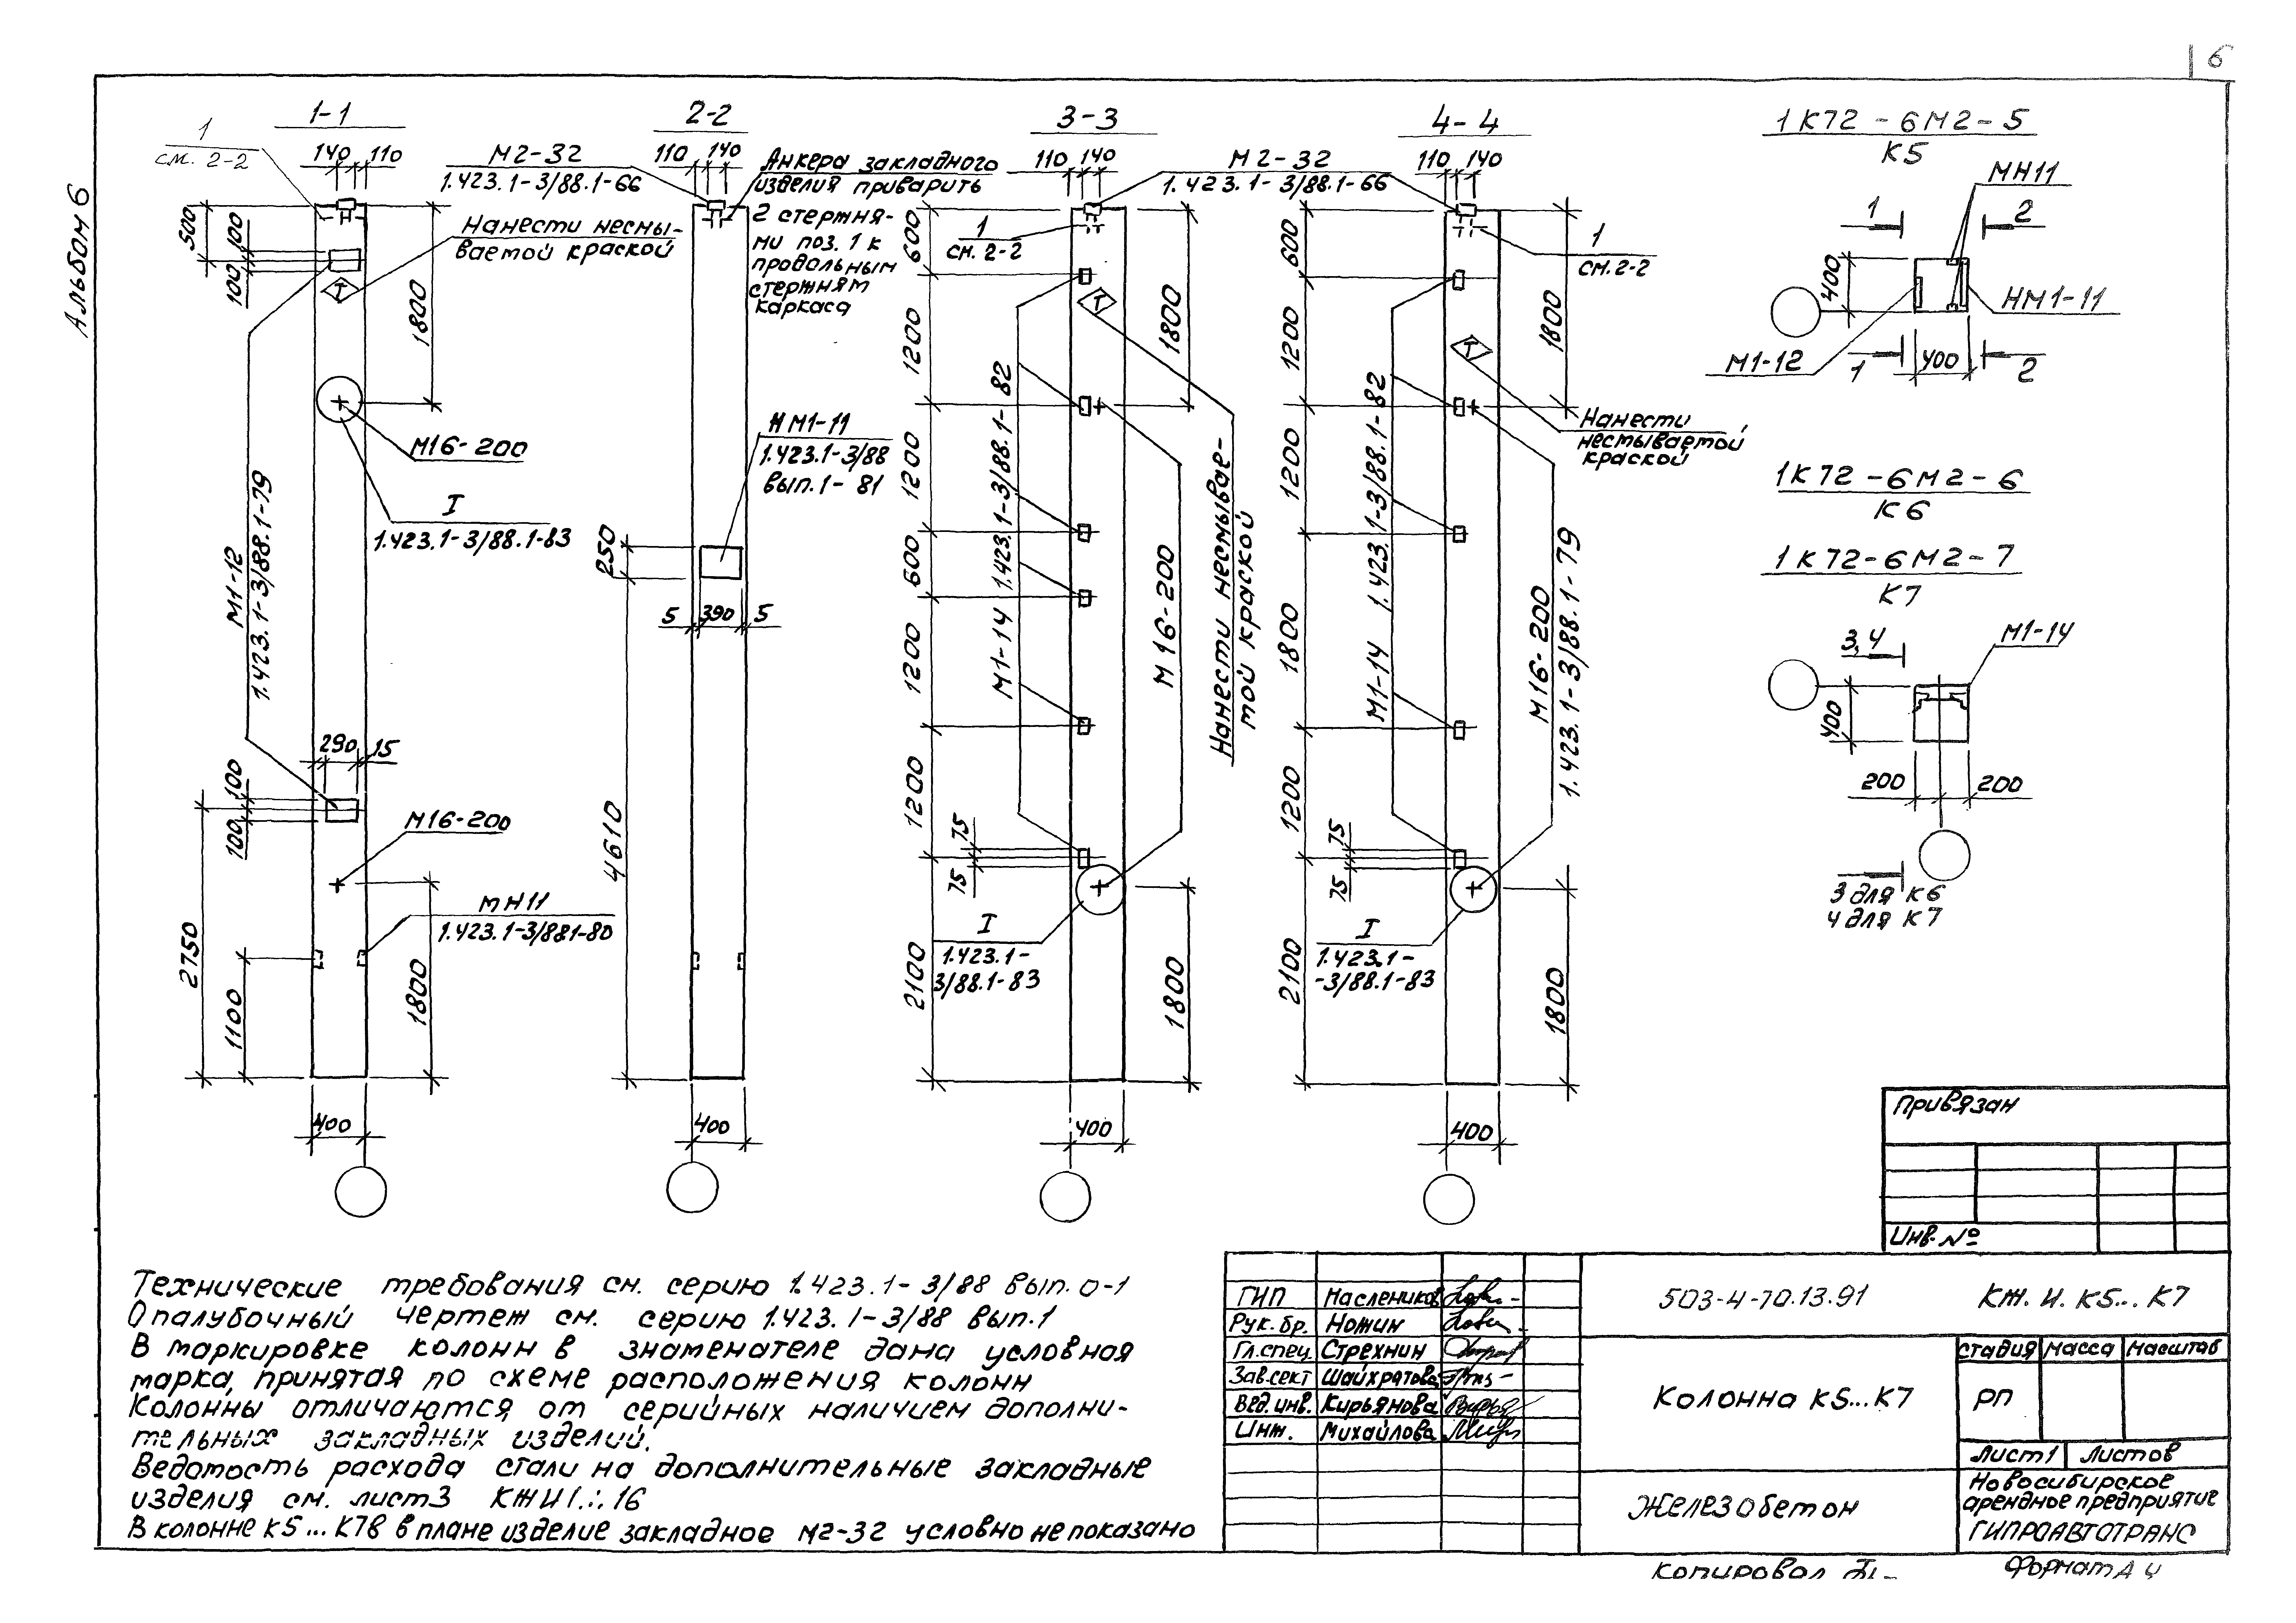 6
Альбом 6
1-1
1
см. 2-2
140
110
500
100
100
1800
Нанести несмы-
ваемой краской
Т
М16-200
I
1.423.1-3/88.1-83
М1-12
1.423.1-3/88.1-79
290
15
100
100
М16-200
МН11
1.423.1-3/881-80
2750
1100
1800
400
2-2
М2-32
1.423.1-3/88.1-66
110
140
Анкера закладного
изделия приварить
2 стержня-
ми поз. 1 к
продольным
стержням
каркаса
НМ1-11
1.423.1-3/88
вып.1-81
250
5
390
5
4610
400
3-3
110
140
М2-32
1.423.1-3/88.1-66
1
см. 2-2
600
1200
1200
600
1200
1200
2100
Т
1800
М1-14 1.423.1-3/88.1-82
М16-200
Нанести несмывае-
мой краской
75
75
I
1.423.1-
3/88.1-83
1800
400
4-4
110
140
1
см. 2-2
600
1200
1200
1800
1200
2100
Т
1800
М1-14 1.423.1-3/88.1-82
Нанести
несмываемой
краской
М16-200
1.423.1-3/88.1-79
75
75
I
1.423.1-
-3/88.1-83
1800
400
1К72-6М2-5
К5
МН11
1
2
400
НМ1-11
М1-12
1
400
2
1К72-6М2-6
К6
1К72-6М2-7
К7
3,4
М1-14
400
200
200
3 для К6
4 для К7
Технические требования см. серию 1.423.1-3/88 вып. 0-1
Опалубочный чертеж см. серию 1.423.1-3/88 вып.1
В маркировке колонн в знаменателе дана условная
марка, принятая по схеме расположения колонн
Колонны отличаются от серийных наличием дополни-
тельных закладных изделий.
Ведомость расхода стали на дополнительные закладные
изделия см. лист3 КЖИ1.:.16
В колонне К5...К7в в плане изделие закладное М2-32 условно не показано
Привязан
Инв.№
ГИП Маслеников
Рук.бр. Ножин
Гл.спец. Стрехнин
Зав.сект Шайхратова
Вед.инв. Кирьянова
Инж. Михайлова
503-4-70.13.91
КЖ.И.К5...К7
Колонна К5...К7
стадия масса масштаб
РП
Лист1 Листов
Железобетон
Новосибирское
арендное предприятие
ГИПРОАВТОТРАНС
Копировал
Формат А4